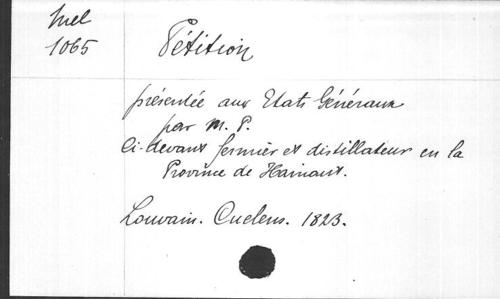 Mel
1065
Pétition
présentée aux Etats Généraux
par M. P.
Ci-devant fermier et distillateur en la
Province de Hainaut.
Louvain. Cuelens. 1823.